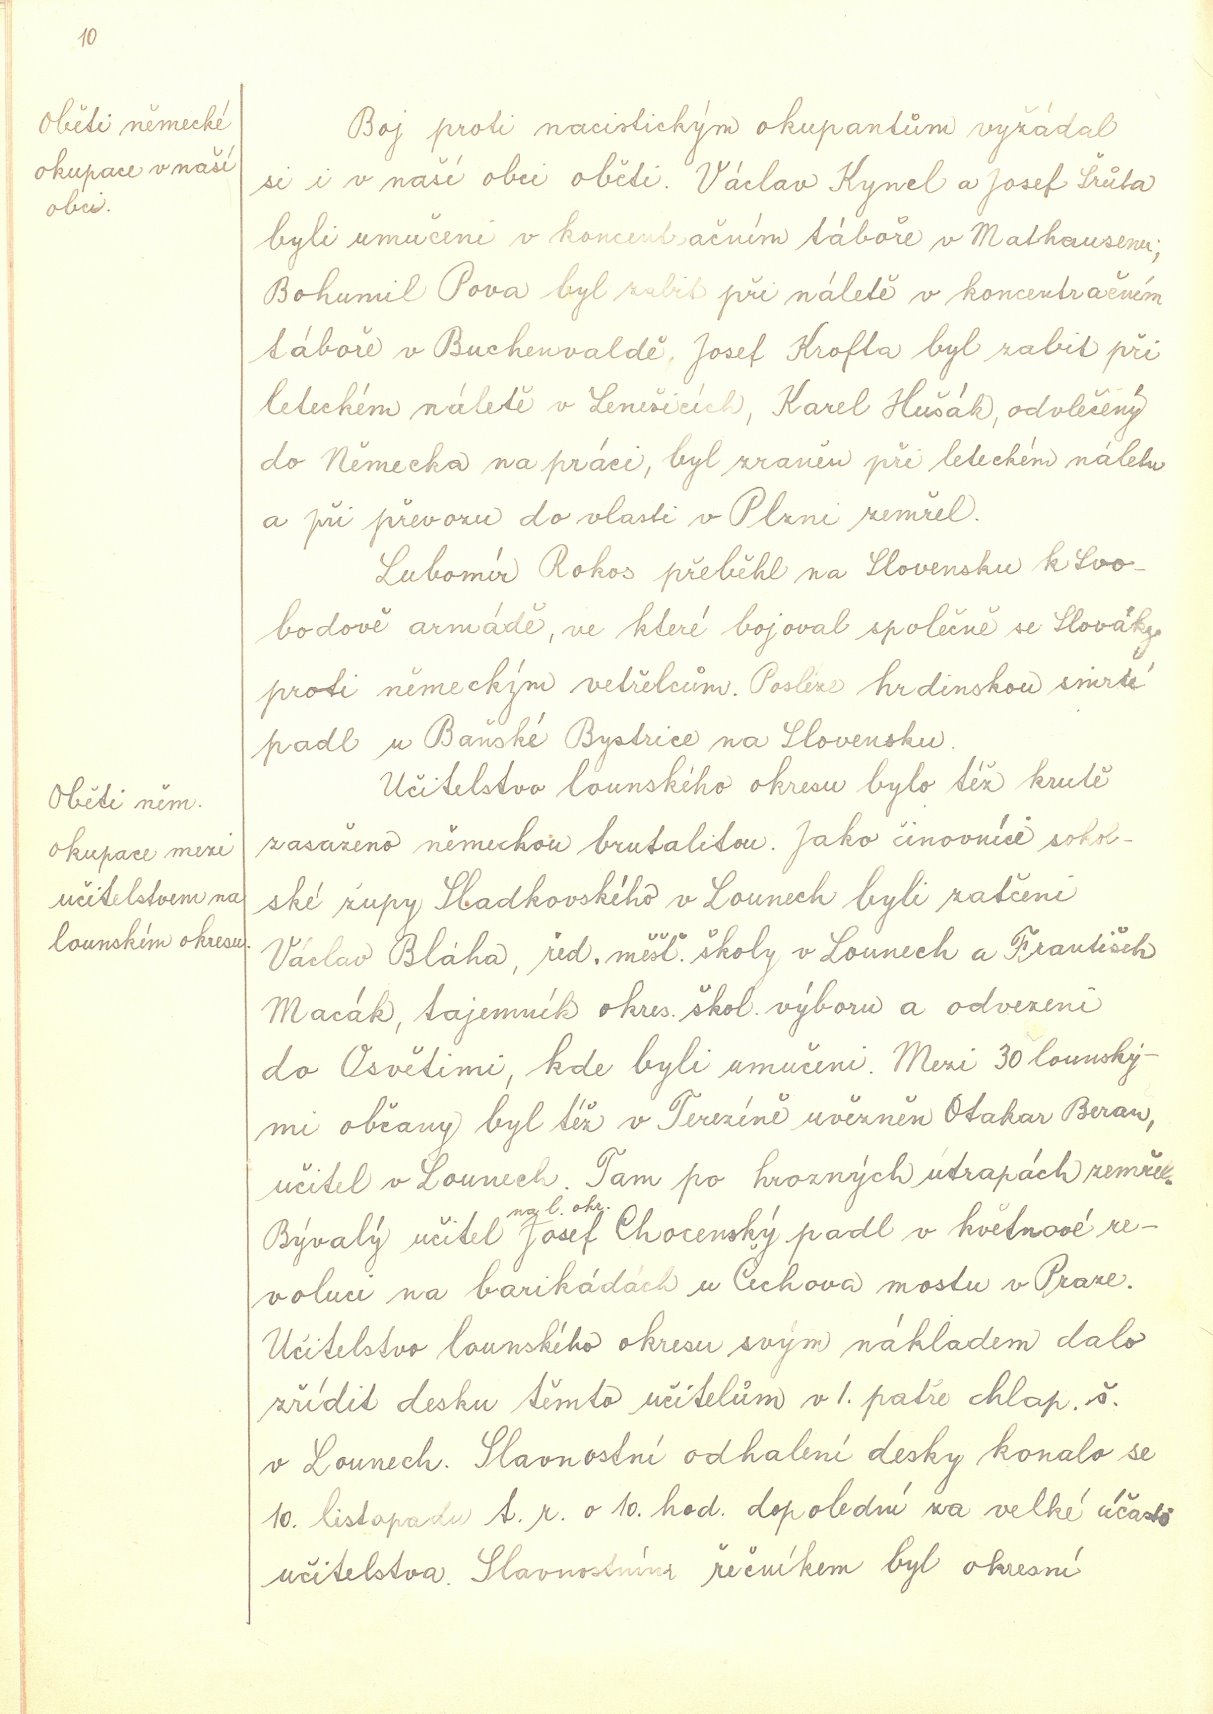 10
Oběti německé
okupace v naší
obci.
Boj proti nacistickým okupantům vyžádal
si i v naší obci oběti. Václav Kynel a Josef Šrůta
byli umučeni v koncentračním táboře v Mathausenu;
Bohumil Pova byl zabit při náletě v koncentračním
táboře v Buchenvaldě, Josef Krofta byl zabit při
leteckém náletě v Lenešicích, Karel Hušák, odvlečený
do Německa na práci, byl zraněn při leteckém náletu
a při převozu do vlasti v Plzni zemřel.
Lubomír Rokos přeběhl na Slovensku k Svo-
bodově armádě, ve které bojoval společně se Slováky
proti německým vetřelcům. Posléze hrdinskou smrtí
padl u Baňské Bystrice na Slovensku.
Oběti něm.
okupace mezi
učitelstvem na
lounském okresu.
Učitelstvo lounského okresu bylo též krutě
zasaženo německou brutalitou. Jako činovníci sokol-
ské župy Sladkovského v Lounech byli zatčeni
Václav Bláha, řed. měšť. školy v Lounech a František
Macák, tajemník okres. škol. výboru a odvezeni
do Osvětimi, kde byli umučeni. Mezi 30 lounský-
mi občany byl též v Terezíně uvězněn Otakar Beran,
učitel v Lounech. Tam po hrozných útrapách zemřel.
na l. okr.
Bývalý učitel Josef Chocenský padl v květnové re-
voluci na barikádách u Čechova mostu v Praze.
Učitelstvo lounského okresu svým nákladem dalo
zřídit desku těmto učitelům v 1. patře chlap. š.
v Lounech. Slavnostní odhalení desky konalo se
10. listopadu t. r. o 10. hod. dopolední za velké účasti
učitelstva. Slavnostním řečníkem byl okresní